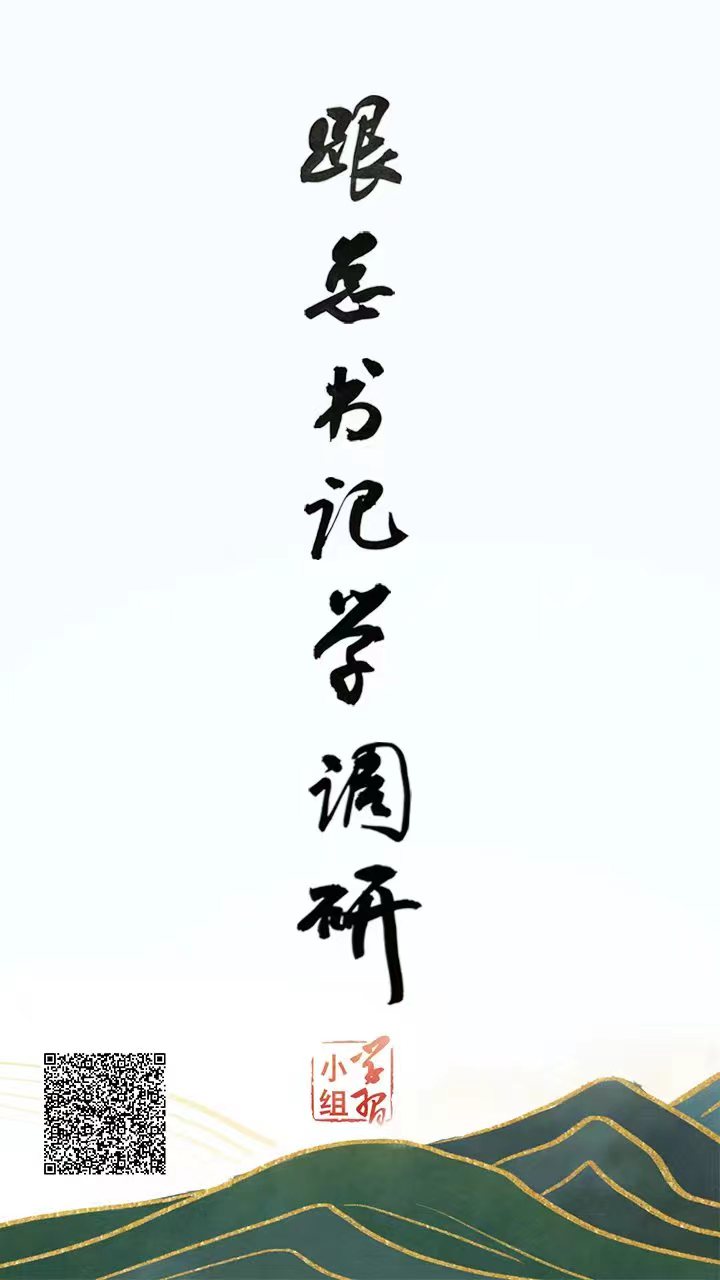 跟总书记学调研
学习
小组